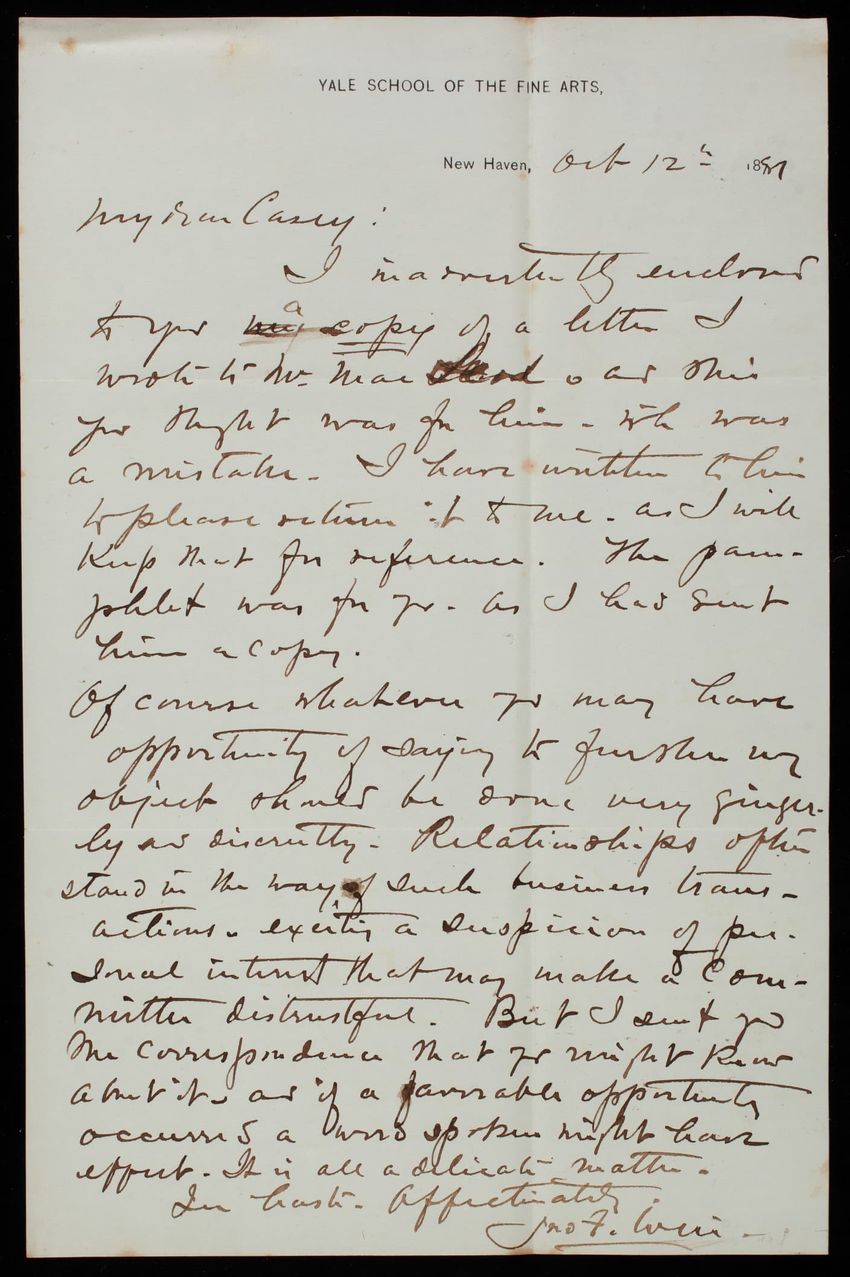 YALE SCHOOL OF THE FINE ARTS,
New Haven, Oct 12th 1887
My dear Casey:
I inadvertently enclosed
to you a copy of a letter I
wrote to Mr. Mac and this
you thought was for him - wh was
a mistake. I have written to him
to please return it to me. as I will
keep that for reference. The pam-
phlet was for yo. as I had sent
him a copy.
Of course whatever yo may have
opportunity of saying to further my
object should be done very ginger-
ly and discreetly. Relationships often
stand in the way of such business trans-
actions. exciting a suspicion of per-
sonal interest that may make a Com-
mittee distrustful. But I sent yo
the correspondence that yo might know
about it. and if a favorable opportunity
occurred a word spoken might have
effect. It is all a delicate matter.
In haste. Affectionately.
Jno F. Weir.